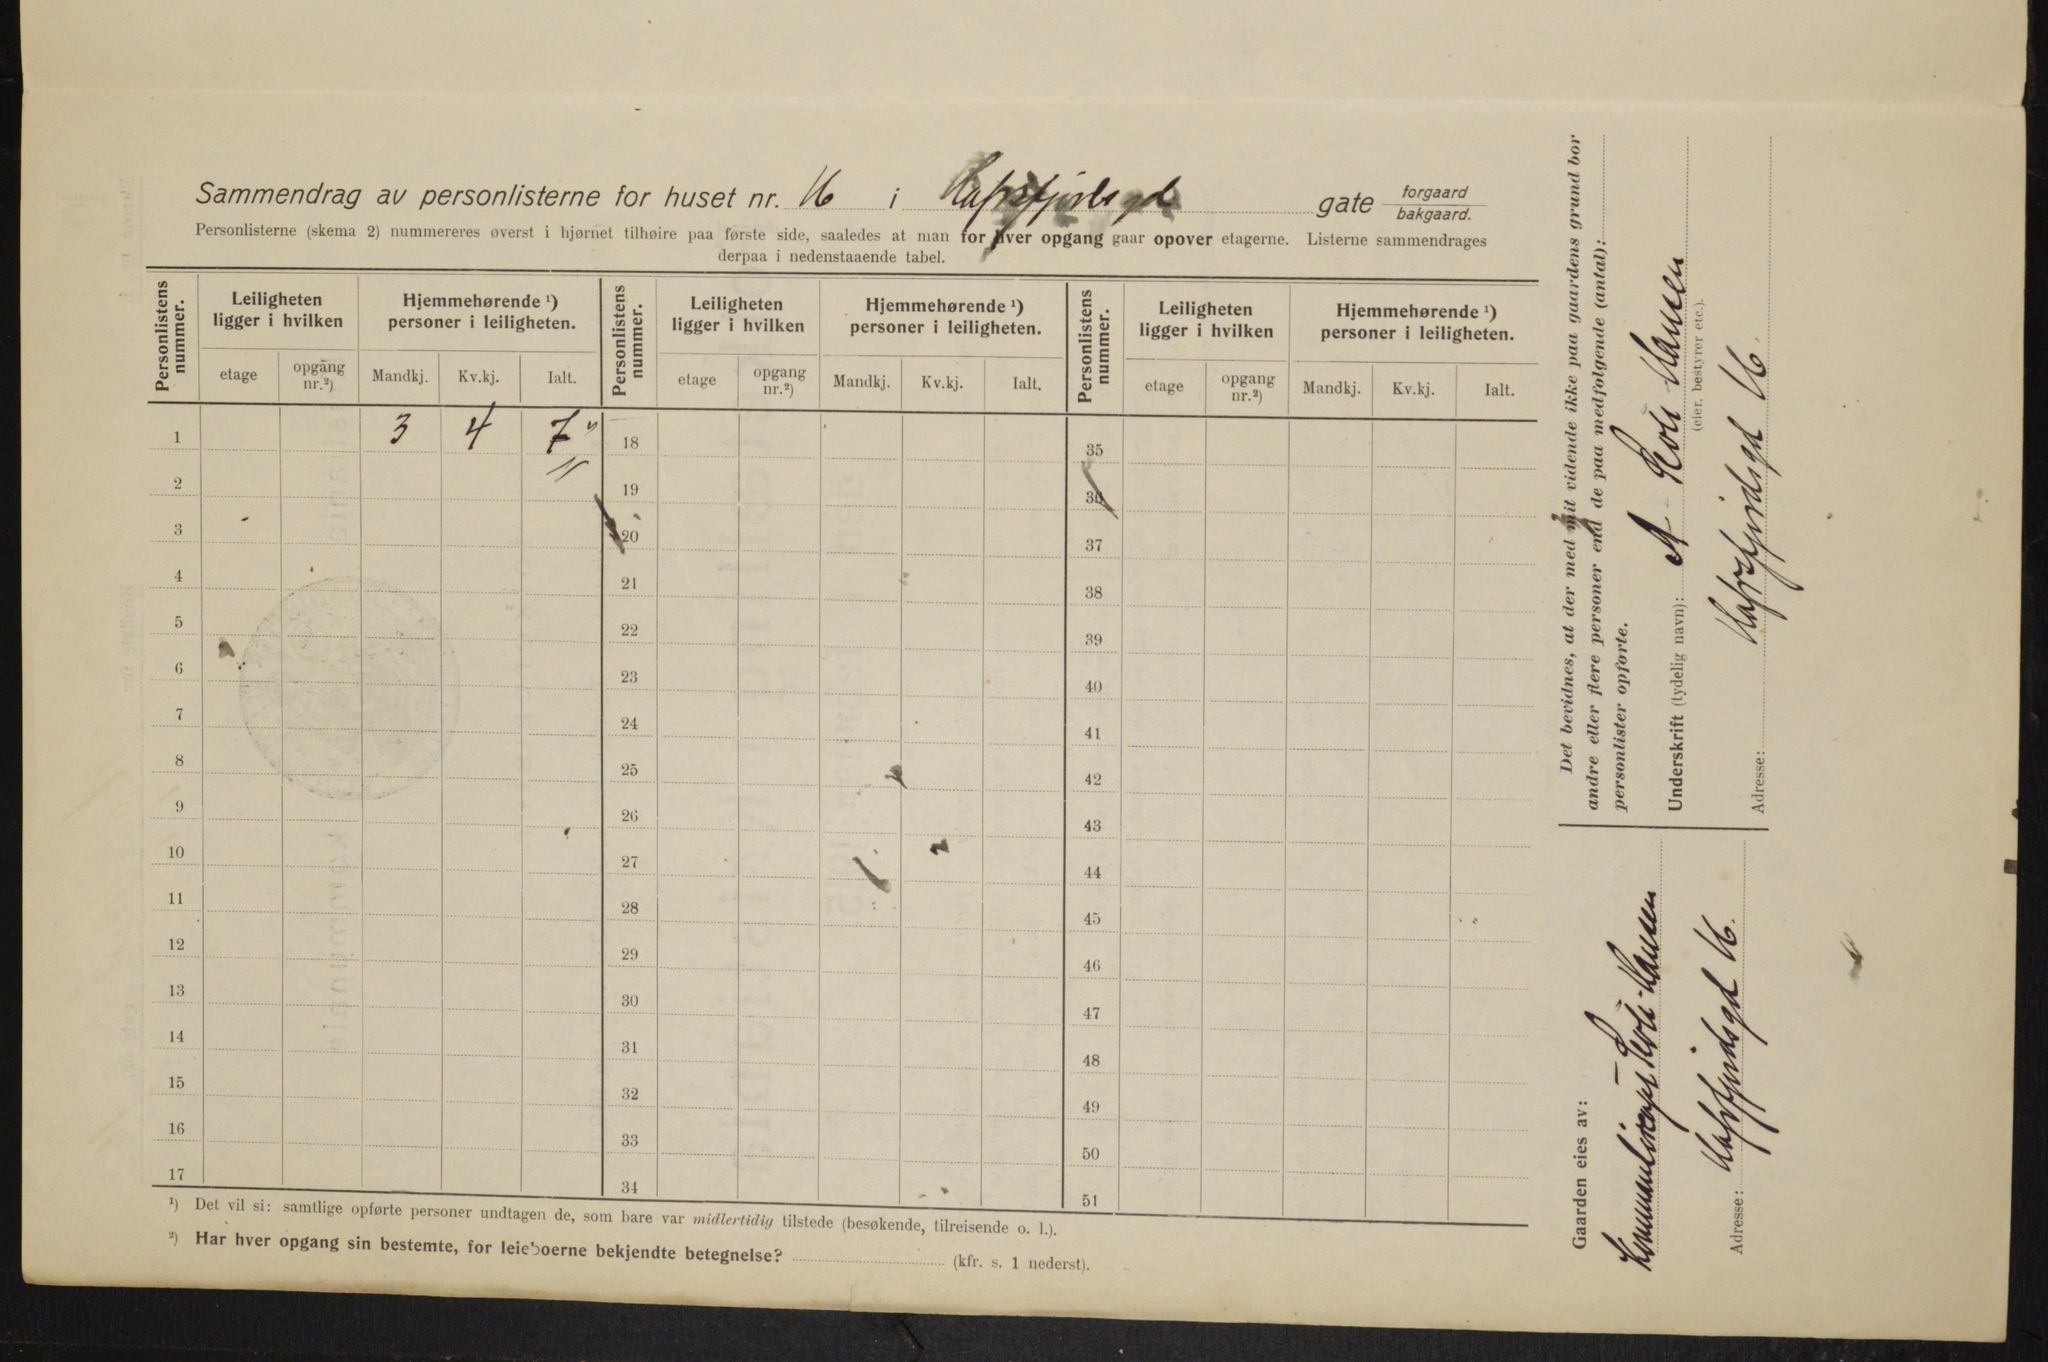 Sammendrag av personlisterne for huset nr. 16 i Hafrsfjordsgd gate forgaard
bakgaard.
Personlisterne (skema 2) nummereres øverst i hjørnet tilhøire paa første side, saaledes at man for hver opgang gaar opover etagerne. Listerne sammendrages
derpaa i nedenstaaende tabel.
Personlistens nummer. Leiligheten ligger i hvilken Hjemmehørende ¹) personer i leiligheten. Personlistens nummer. Leiligheten ligger i hvilken Hjemmehørende ¹) personer i leiligheten. Personlistens nummer. Leiligheten ligger i hvilken Hjemmehørende ¹) personer i leiligheten.
etage opgang nr.²) Mandkj. Kv.kj. Ialt. etage opgang nr.²) Mandkj. Kv.kj. Ialt. etage opgang nr.²) Mandkj. Kv.kj. Ialt.
1 3 4 7 18 35
2 19 36
3 20 37
4 21 38
5 22 39
6 23 40
7 24 41
8 25 42
9 26 43
10 27 44
11 28 45
12 29 46
13 30 47
14 31 48
15 32 49
16 33 50
17 34 51
¹) Det vil si: samtlige opførte personer undtagen de, som bare var midlertidig tilstede (besøkende, tilreisende o. l.).
²) Har hver opgang sin bestemte, for leieboerne bekjendte betegnelse? (kfr. s. 1 nederst).
Gaarden eies av:
Hansen
Adresse: Hafrsfjordsgd 16.
Det bevidnes, at der med mit vidende ikke paa gaardens grund bor
andre eller flere personer end de paa medfølgende (antal):
personlister opførte.
Underskrift (tydelig navn): A Hansen
(eier, bestyrer etc.).
Adresse: Hafrsfjordsgd 16.